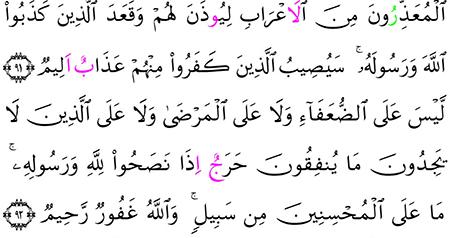 الْمُعَذِّرُونَ مِنَ اَ۬لَاعْرَابِ لِيُوذَنَ لَهُمْ وَقَعَدَ اَ۬لذِينَ كَذَبُواْ
اُ۬للَّهَ وَرَسُولَهُۥۖ سَيُصِيبُ اُ۬لذِينَ كَفَرُواْ مِنْهُمْ عَذَابٌ اَلِيمٞۖ ٩١
لَّيْسَ عَلَى اَ۬لضُّعَفَآءِ وَلَا عَلَى اَ۬لْمَرْض۪يٰ وَلَا عَلَى اَ۬لذِينَ لَا
يَجِدُونَ مَا يُنفِقُونَ حَرَجٌ اِذَا نَصَحُواْ لِلهِ وَرَسُولِهِۦۖ
مَا عَلَى اَ۬لْمُحْسِنِينَ مِن سَبِيلٖۖ وَاللَّهُ غَفُورٞ رَّحِيمٞۖ ٩٢